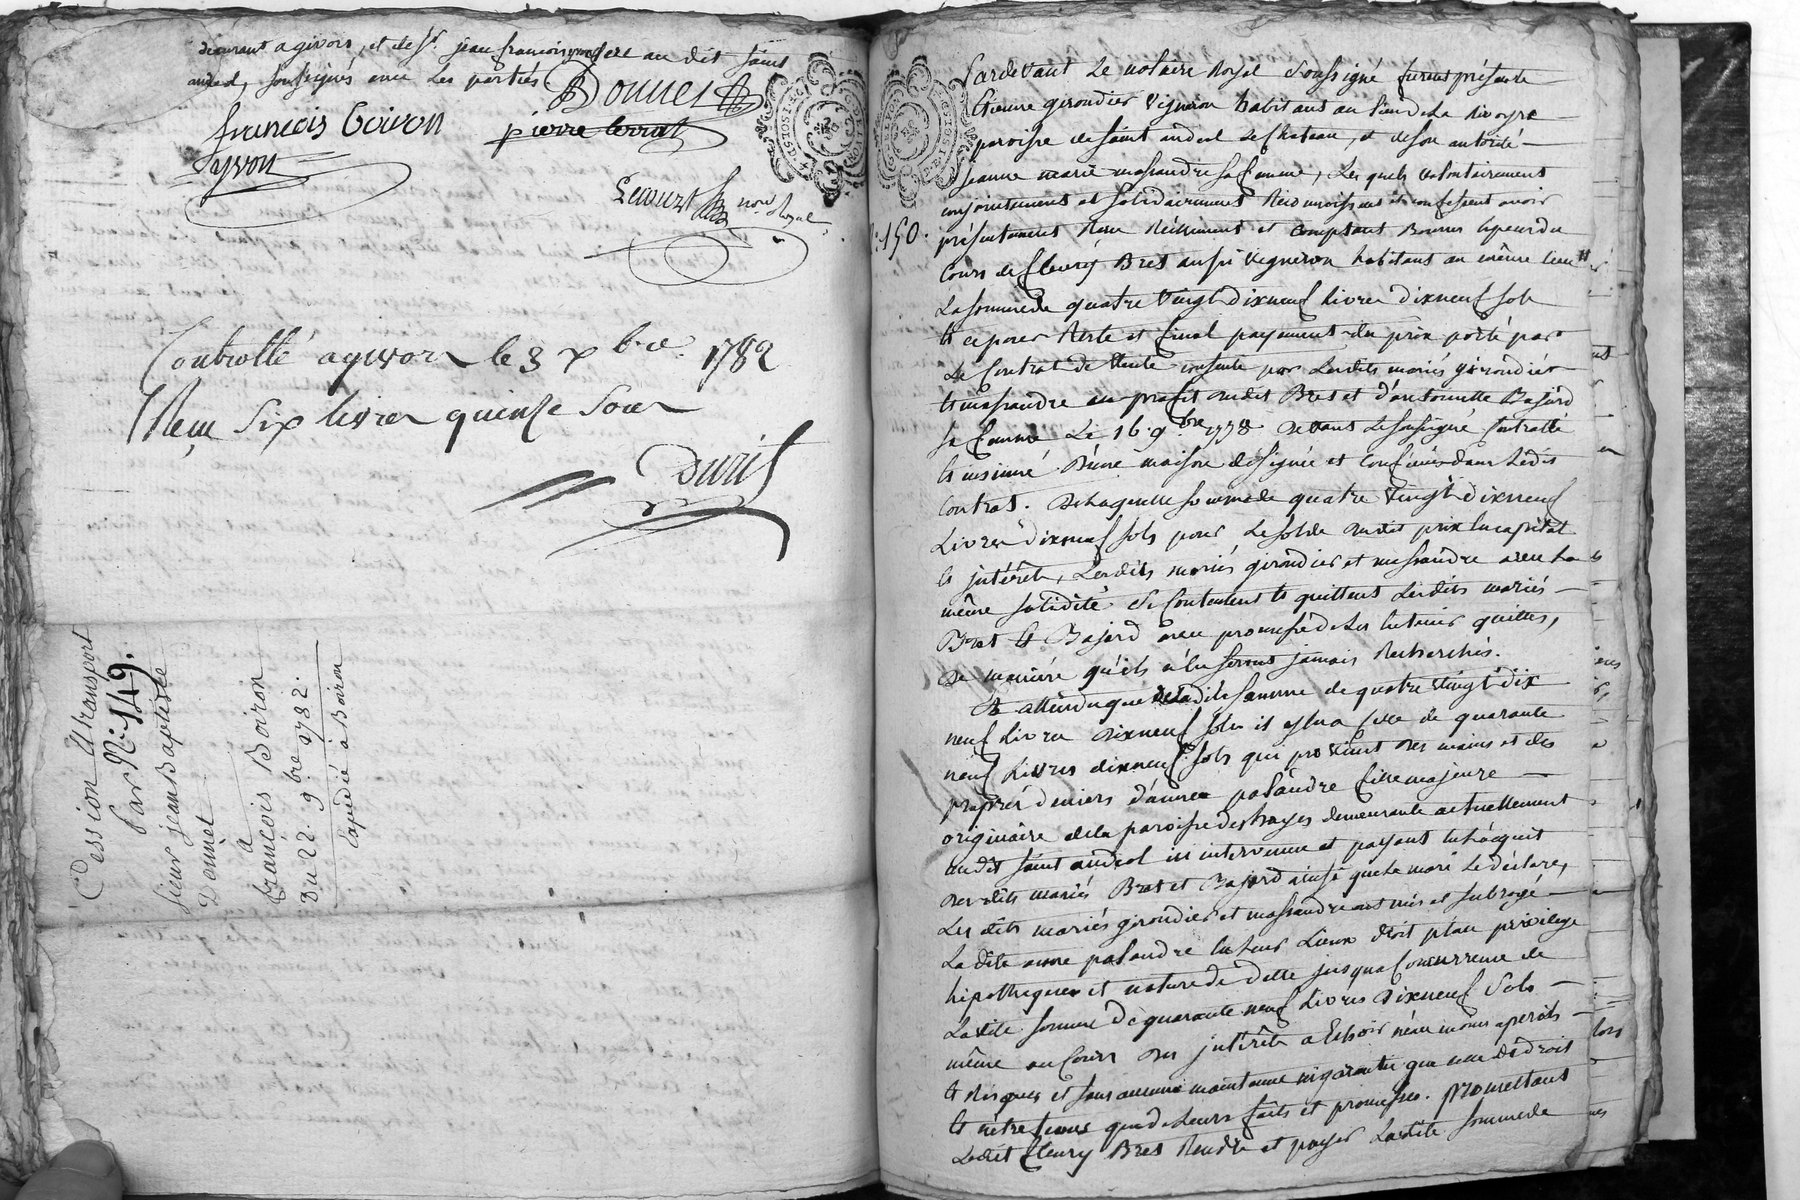 demeurant a givors, et de Sr. jean françois au dit saint
andeol, soussignés avec les parties Donnet
françois boiron pierre
yvon
Lecourt nore. Royal
Controllé a givors le 3 xbre. 1782
Reçu Six livres quinze sous
Duril
Cession et transport
N: 149.
Par
Sieur jean Baptiste
Donnet
a
françois Boiron
Du 22. 9.bre 1782.
Expediée à Boiron
Pardevant Le notaire Royal soussigné furent présents
Etienne girondier vigneron habitant au lieu de la Rivoyre
paroisse de saint andeol le Chateau, et de son autorité
jeanne marie massandre sa femme, Les quels volontairement
conjointement et solidairement Reconnoissent et confessent avoir
N: 150.
présentement Reçu Réellement et comptant
Cours de fleury Bret aussi vigneron habitant au même lieu
La somme de quatre vingt dixneuf livres dixneuf sols
et ce pour Reste et final payement du prix porté par
Le Contrat de Vente consenti par Lesdits mariés girondier
et massandre au profit dudit Bret et d'antoinette Bajard
sa femme Le 16. 9.bre 1778 devant Le soussigné Controllé
et insinué D'une maison désignée et confinée dans Ledit
Contrat. De laquelle somme de quatre vingt dixneuf
Livres dixneuf sols pour Le solde dudit prix en capital
et intérêts, Lesdits mariés girondier et massandre avec la
même solidité se contentent et quittent Lesdits mariés
Bret et Bajard avec promesse de Les en tenir quittes,
De manière qu'ils n'en seront jamais Recherchés.
Et attendu que de Ladite somme de quatre vingt dix
neuf Livres dixneuf sols il y en a celle de quarante
neuf Livres dixneuf sols qui provient des mains et des
propres deniers d'anne palandre fille majeure
originaire de la paroisse des hayes demeurante actuellement
audit saint andeol ici intervenue et payant en l'acquit
desdits mariés Bret et Bajard ainsi que le mari Le déclare,
Les dits mariés girondier et massandre ont mis et subrogé
La dite anne palandre en Leur Lieux droit place privilege
hipotheques et nature de Dette jusqua Concurrence de
Ladite somme de quarante neuf Livres Dixneuf Sols
même au Cours des intérêts a Echoir néanmoins a perils
et Risques et sans aucune maintenue ni garantie que celle de droit
et n'être tenus que de Leurs faits et promesses. promettant
Ledit fleury Bret Rendre et payer Ladite somme de